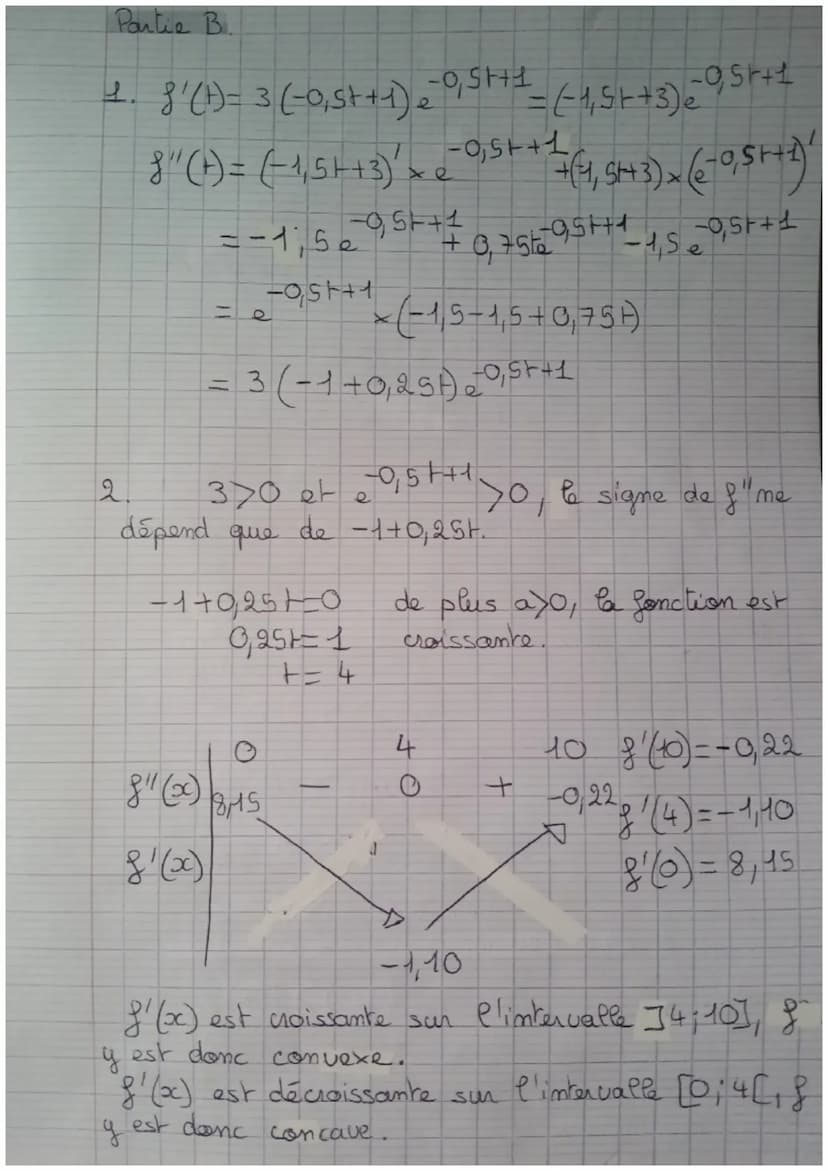 Partie B.
1. f'(t) = 3(-0,5t+1)e^{-0,5t+1} = (-1,5t+3)e^{-0,5t+1}
f''(t) = (-1,5t+3)' × e^{-0,5t+1} + (-1,5t+3) × (e^{-0,5t+1})'
= -1,5e^{-0,5t+1} + 0,75te^{-0,5t+1} - 1,5e^{-0,5t+1}
= e^{-0,5t+1} × (-1,5-1,5+0,75t)
= 3(-1+0,25t)e^{-0,5t+1}
2. 3>0 et e^{-0,5t+1}>0, le signe de f'' ne
dépend que de -1+0,25t.
-1+0,25t=0 de plus a>0, la fonction est
0,25t=1 croissante.
t=4
0 4 10 f'(10)=-0,22
f''(x) - 0 +
8,15 -0,22 f'(4)=-1,10
f'(x) f'(0)=8,15
-1,10
f'(x) est croissante sur l'intervalle ]4;10], f
y est donc convexe.
f'(x) est décroissante sur l'intervalle [0;4[, f
y est donc concave.